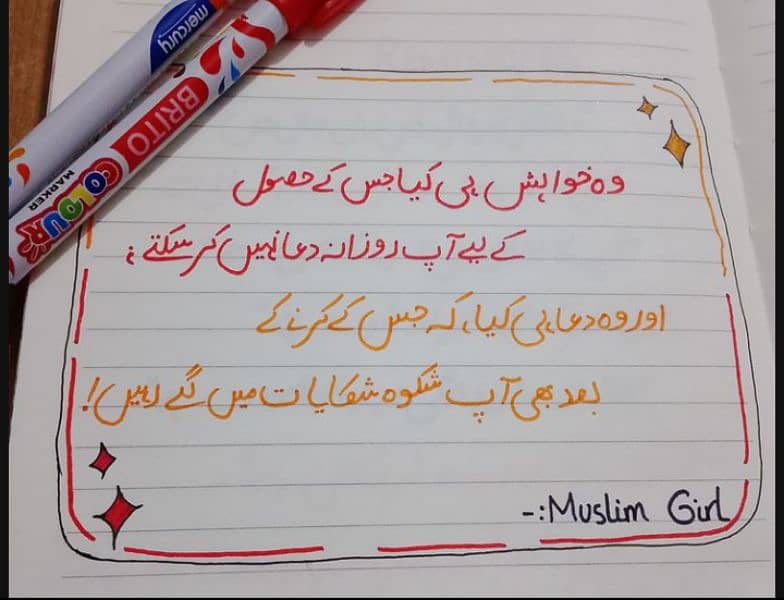 mercury
BRITO
COLOUR
MARKER
وہ خواہش ہی کیا جس کے حصول
کے لیے آپ روزانہ دعا نہیں کر سکتے؛
اور وہ دعا ہی کیا، کہ جس کے کرنے کے
بعد بھی آپ شکوہ شکایات میں لگے رہیں!
-:Muslim Girl